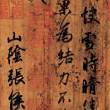 快雪時晴
果為結力不
山陰張侯